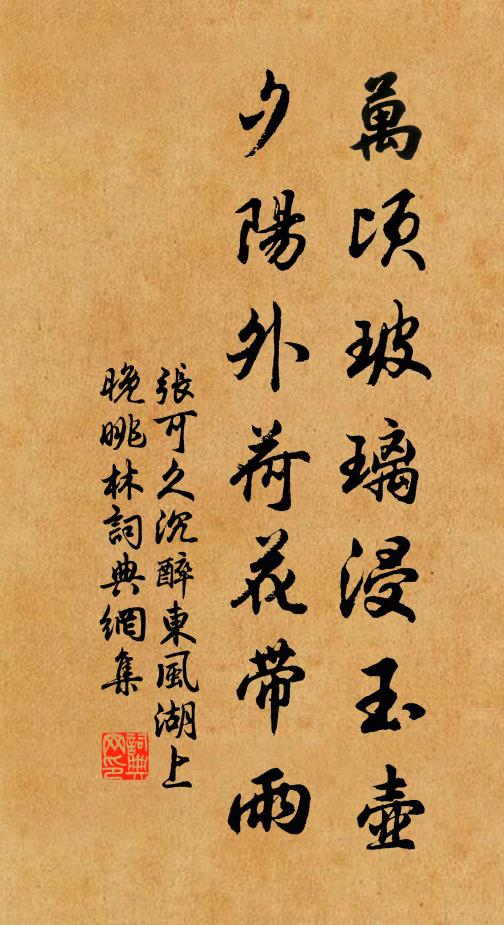 萬頃玻璃浸玉壺
夕陽外荷花帶雨
張可久沉醉東風湖上
晚眺林詞典網集
詞典
网印